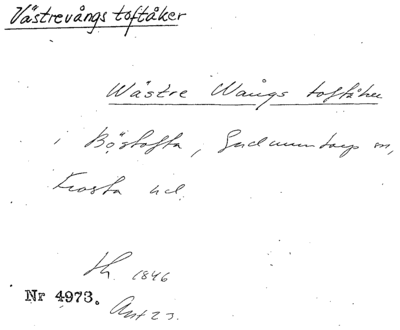 Västrevångs toftåker
Wästre Wångs toftåker
i Böstofta, Gudmuntorp sn,
Frosta hd.
1846
Nr 4973.
Ant 23.